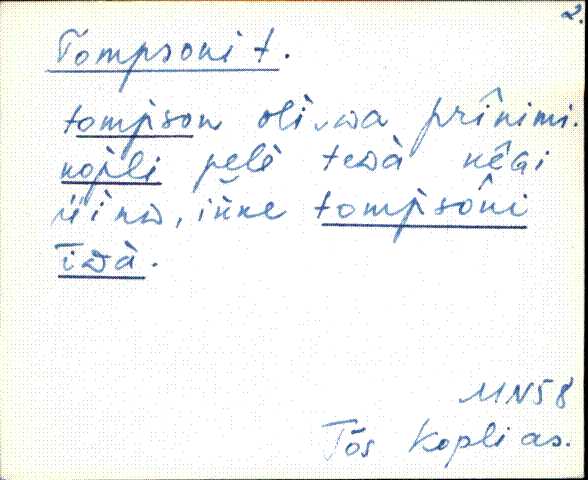 2.
Tompsoni t.
tompson oli, wa prinimi.
kopli pelè tedà nêGi
üinD, iñne tompsôni
īdà.
MN58
Tõs Kopli as.